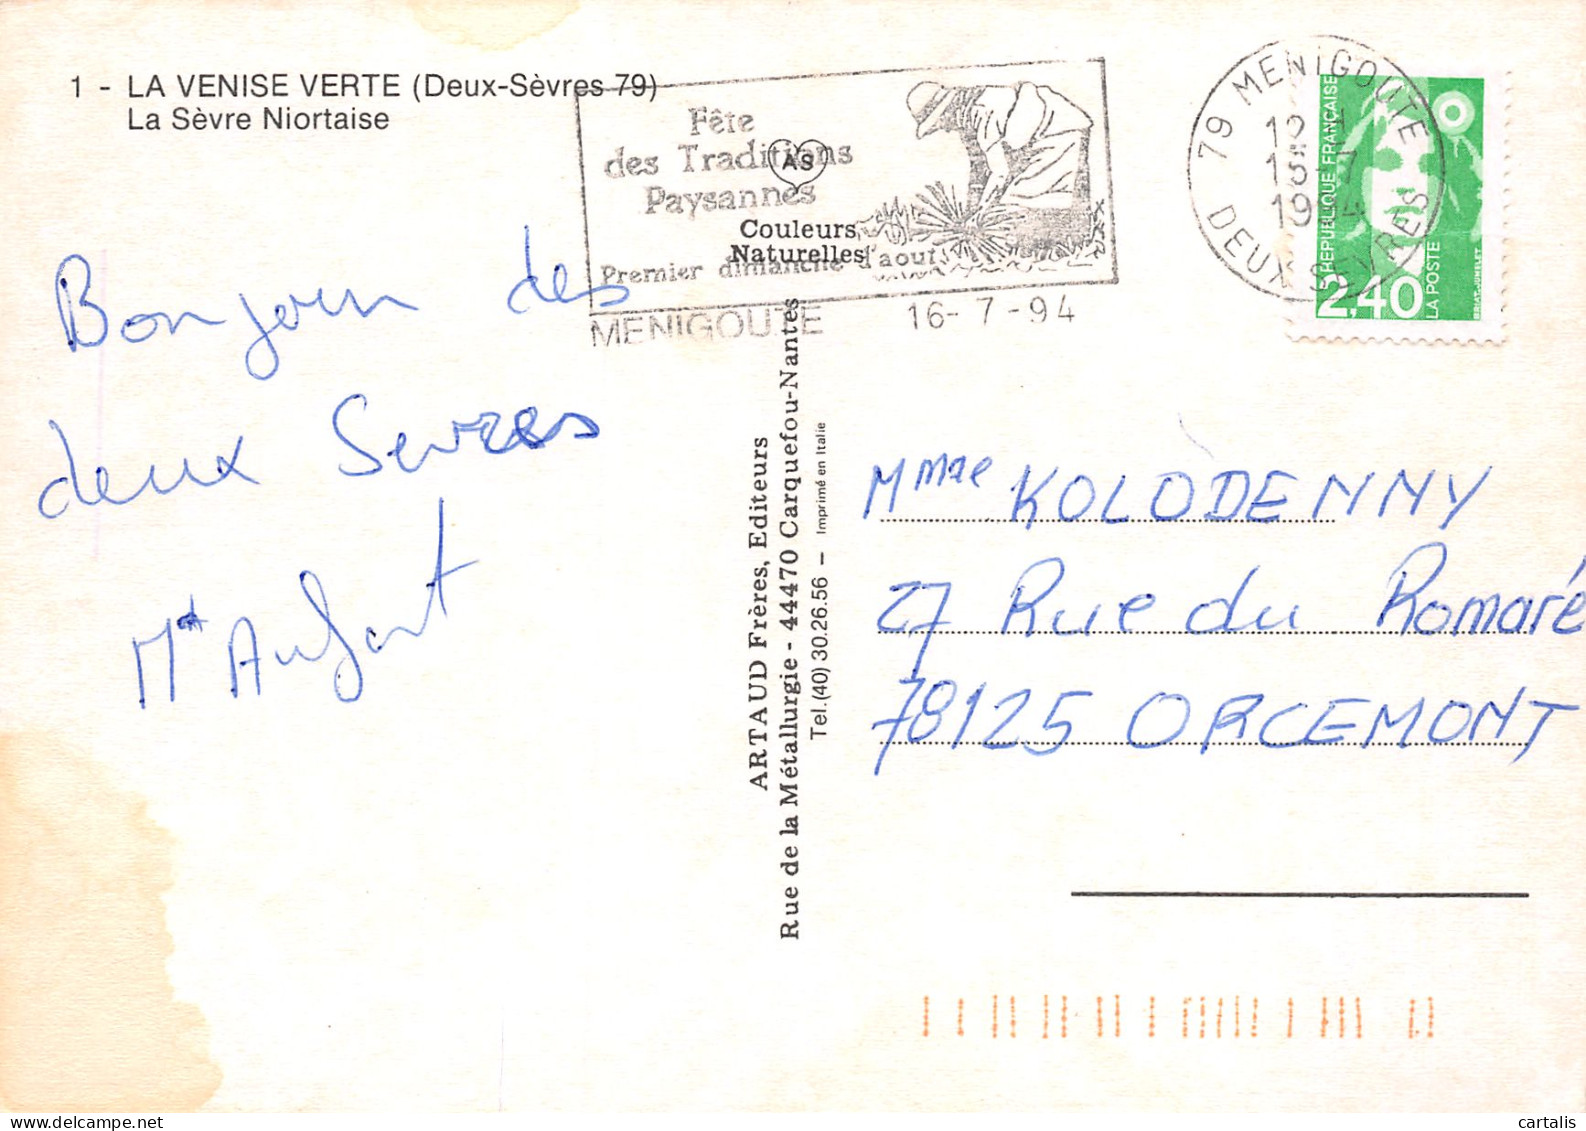 1 - LA VENISE VERTE (Deux-Sèvres 79)
La Sèvre Niortaise
Fête
des Traditions
Paysannes
Premier dimanche d'aout
MENIGOUTE 16-7-94
AS
Couleurs
Naturelles
79 MENIGOUTE
DEUX SEVRES
REPUBLIQUE FRANÇAISE
2,40
LA POSTE
BRIAT-JUMELET
Bonjour des
deux Sevres
ARTAUD Frères, Editeurs
Rue de la Métallurgie - 44470 Carquefou-Nantes
Tel.(40) 30.26.56 – Imprimé en Italie
Mmme KOLODENNY
27 Rue du Romaré
78125 ORCEMONT
cartalis